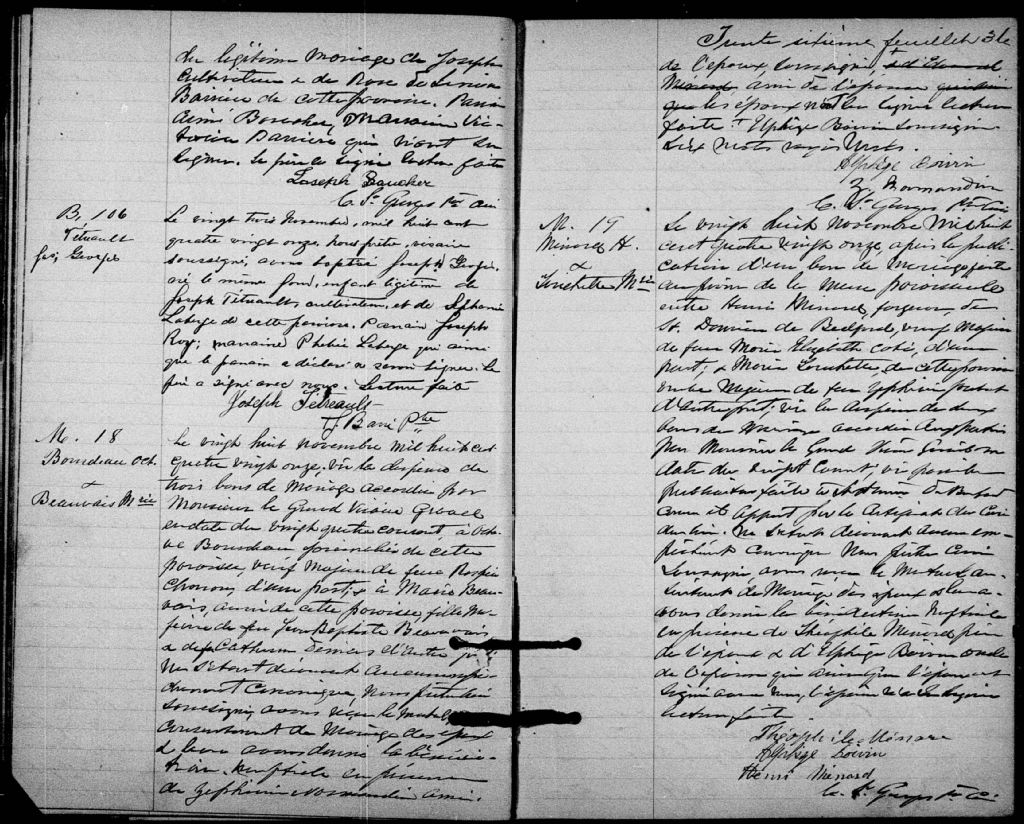 du légitime mariage de Joseph
Cultivateur & de Rose de Lima
Barrière de cette paroisse. Parrain
Aimé Boucher, Marraine Vic-
toire Barrière qui n'ont su
signer. Le père a signé Lecture faite
Joseph Boucher
C. St. Georges Ptre Curé
B. 106
Tétrault
Jos; Georges
Le vingt trois Novembre, mil huit cent
quatre vingt onze, nous prêtre, vicaire
soussigné, avons baptisé Joseph Georges,
né le même jour, enfant légitime de
Joseph Tétreault cultivateur, et de
Laberge de cette paroisse. Parrain Joseph
Roy; marraine Phébée Laberge qui ainsi
que le parrain a déclaré ne savoir signer. Le
père a signé avec nous. Lecture faite
Joseph Tétreault
Ptre
M. 18
Bourdeau Oct.
&
Beauvais Mrie
Le vingt huit novembre Mil huit cent
quatre vingt onze, vu la dispense de
trois bans de Mariage accordée par
Monsieur le Grand Vicaire Gravel
en date du vingt quatre courant, à Octa-
ve Bourdeau, journalier de cette
paroisse, veuf Majeur de feue
d'une part, & à Marie Beau-
vais, aussi de cette paroisse, fille Ma-
jeure de feu Jean Baptiste Beauvais
& de Catherine d'autre part
Ne s'étant découvert aucun empê-
chement Canonique, Nous prêtre
soussigné, avons reçu le Mutuel
Consentement de Mariage des époux
& leur avons donné la bénédic-
tion Nuptiale en présence
de Zéphirin Normandin ami
Trente sixième feuillet 36
de l'époux, soussigné, & d'Edmond
Ménard ami de l'épouse
que les époux n'ont su signer lecture
faite & Elphège Boivin Soussigné
dix mots rayés nuls.
Alphège Boivin
Z. Normandin
C. St Georges Ptre Curé
M. 19
Ménard H.
&
Touchette Mrie
Le vingt huit Novembre Mil huit
cent quatre vingt onze, après la publi-
cation d'un ban de Mariage faite
au prône de la Messe paroissiale
entre Henri Ménard, forgeron, de
St. Damien de Bedford, veuf Majeur
de feue Marie Elizabeth Coté, d'une
part; & Marie Touchette, de cette paroisse
veuve Majeure de feu Zéphirin
d'autre part, vu la dispense de deux
bans de Mariage accordée aux parties
par Monsieur le Grand Vicaire
date du vingt Courant, vu pareille
publication faite à St Damien de Bedford
comme il Appert par le Certificat du Curé
du lieu. Ne s'étant découvert aucun em-
pêchement Canonique Nous prêtre Curé
Soussigné, avons reçu le Mutuel Con-
sentement de Mariage des époux & leur a-
vons donné la bénédiction Nuptiale
en présence de Théophile Ménard père
de l'époux & d'Elphège Boivin oncle
de l'épouse qui ainsi que l'époux ont
signé avec nous, l'épouse n'a su signer
lecture faite.
Théophile Ménard
Alphège Boivin
Henri Ménard
C. St. Georges Ptre Cu.